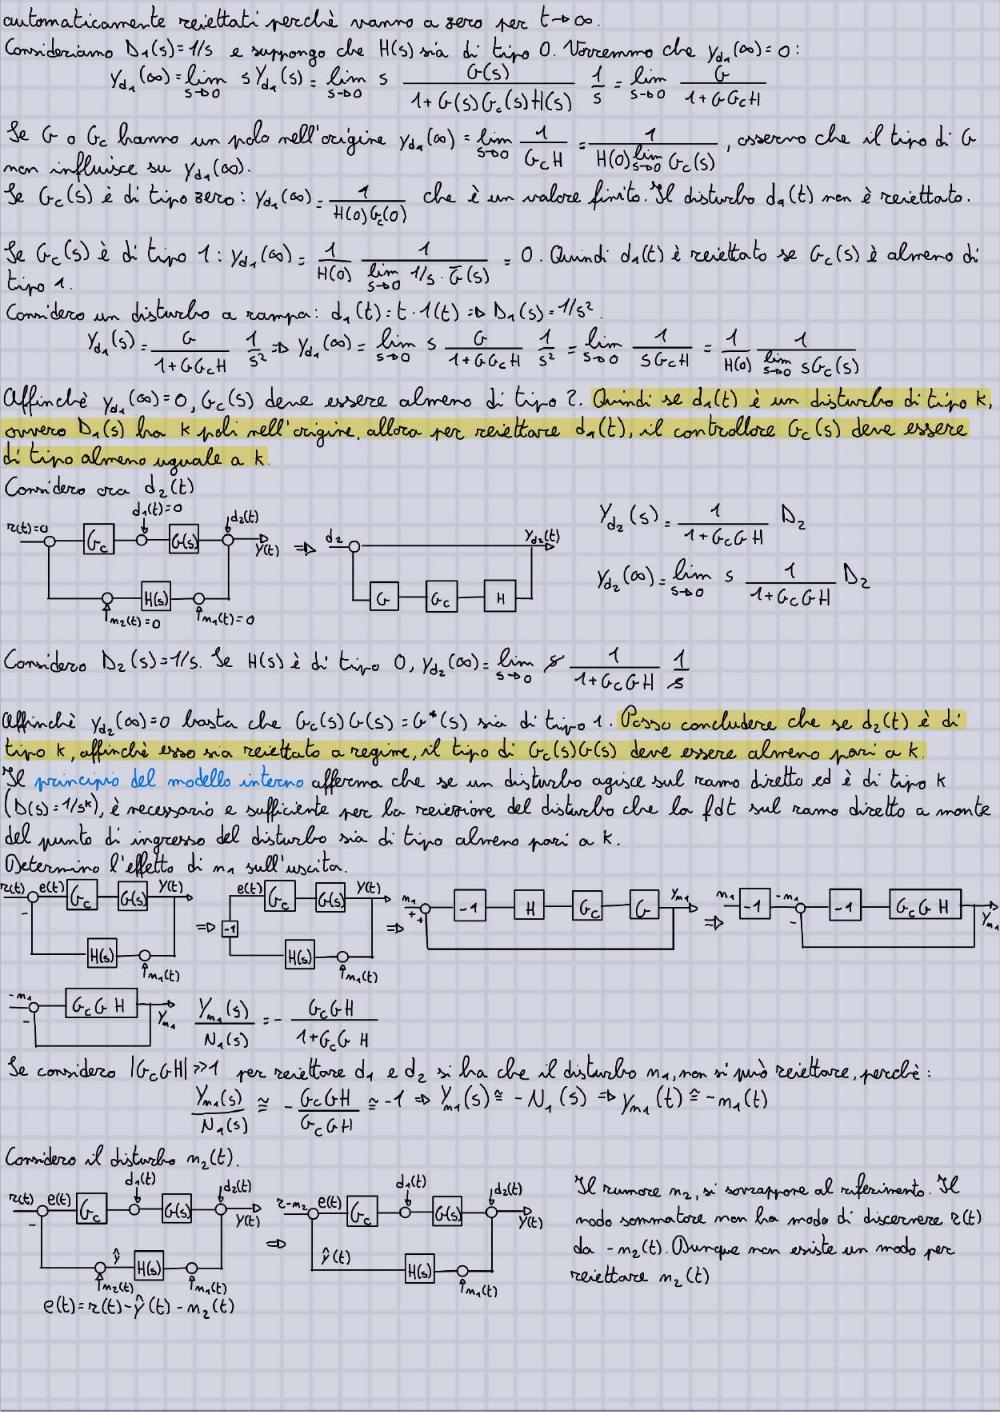 automaticamente reiettati perchè vanno a zero per t→∞.
Consideriamo D₁(s)=1/s e suppongo che H(s) sia di tipo 0. Vorremmo che y_d₁(∞)=0:
y_d₁(∞) = lim_{s→0} s Y_d₁(s) = lim_{s→0} s G(s)/(1+G(s)G_c(s)H(s)) 1/s = lim_{s→0} G/(1+GG_cH)
Se G o G_c hanno un polo nell'origine y_d₁(∞) = lim_{s→0} 1/(G_cH) = 1/(H(0) lim_{s→0} G_c(s)), osservo che il tipo di G
non influisce su y_d₁(∞).
Se G_c(s) è di tipo zero: y_d₁(∞) = 1/(H(0)G_c(0)) che è un valore finito. Il disturbo d₁(t) non è reiettato.
Se G_c(s) è di tipo 1: y_d₁(∞) = 1/H(0) 1/(lim_{s→0} 1/s · G̅(s)) = 0. Quindi d₁(t) è reiettato se G_c(s) è almeno di
tipo 1.
Considero un disturbo a rampa: d₁(t)=t·1(t) ⇒ D₁(s)=1/s².
Y_d₁(s) = G/(1+GG_cH) 1/s² ⇒ y_d₁(∞) = lim_{s→0} s G/(1+GG_cH) 1/s² = lim_{s→0} 1/(sG_cH) = 1/H(0) 1/(lim_{s→0} sG_c(s))
Affinchè y_d₁(∞)=0, G_c(s) deve essere almeno di tipo 2. Quindi se d₁(t) è un disturbo di tipo k,
ovvero D₁(s) ha k poli nell'origine, allora per reiettare d₁(t), il controllore G_c(s) deve essere
di tipo almeno uguale a k.
Considero ora d₂(t)
r(t)=0 G_c d₁(t)=0 G(s) d₂(t) y(t) H(s) n₂(t)=0 n₁(t)=0 ⇒ d₂ y_d₂(t) G G_c H
Y_d₂(s) = 1/(1+G_cGH) D₂
y_d₂(∞) = lim_{s→0} s 1/(1+G_cGH) D₂
Considero D₂(s)=1/s. Se H(s) è di tipo 0, y_d₂(∞) = lim_{s→0} s 1/(1+G_cGH) 1/s
Affinchè y_d₂(∞)=0 basta che G_c(s)G(s)=G*(s) sia di tipo 1. Posso concludere che se d₂(t) è di
tipo k, affinchè esso sia reiettato a regime, il tipo di G_c(s)G(s) deve essere almeno pari a k.
Il principio del modello interno afferma che se un disturbo agisce sul ramo diretto ed è di tipo k
(D(s)=1/sᵏ), è necessario e sufficiente per la reiezione del disturbo che la fdt sul ramo diretto a monte
del punto di ingresso del disturbo sia di tipo almeno pari a k.
Determino l'effetto di n₁ sull'uscita.
r(t) e(t) G_c G(s) y(t) - H(s) n₁(t) ⇒ e(t) G_c G(s) y(t) -1 H(s) n₁(t) ⇒ n₁ + + -1 H G_c G y_n₁ ⇒ n₁ -1 -n₁ - -1 G_cGH y_n₁
-n₁ - G_cGH y_n₁ Y_n₁(s)/N₁(s) = - G_cGH/(1+G_cGH)
Se considero |G_cGH|≫1 per reiettare d₁ e d₂ si ha che il disturbo n₁, non si può reiettare, perchè:
Y_n₁(s)/N₁(s) ≅ - G_cGH/G_cGH ≅ -1 ⇒ Y_n₁(s) ≅ -N₁(s) ⇒ y_n₁(t) ≅ -n₁(t)
Considero il disturbo n₂(t).
r(t) e(t) G_c d₁(t) G(s) d₂(t) y(t) - ŷ H(s) n₂(t) n₁(t) ⇒ r-n₂ e(t) G_c d₁(t) G(s) d₂(t) y(t) - ŷ(t) H(s) n₁(t)
e(t)=r(t)-ŷ(t)-n₂(t)
Il rumore n₂, si sovrappone al riferimento. Il
nodo sommatore non ha modo di discernere r(t)
da -n₂(t). Dunque non esiste un modo per
reiettare n₂(t)